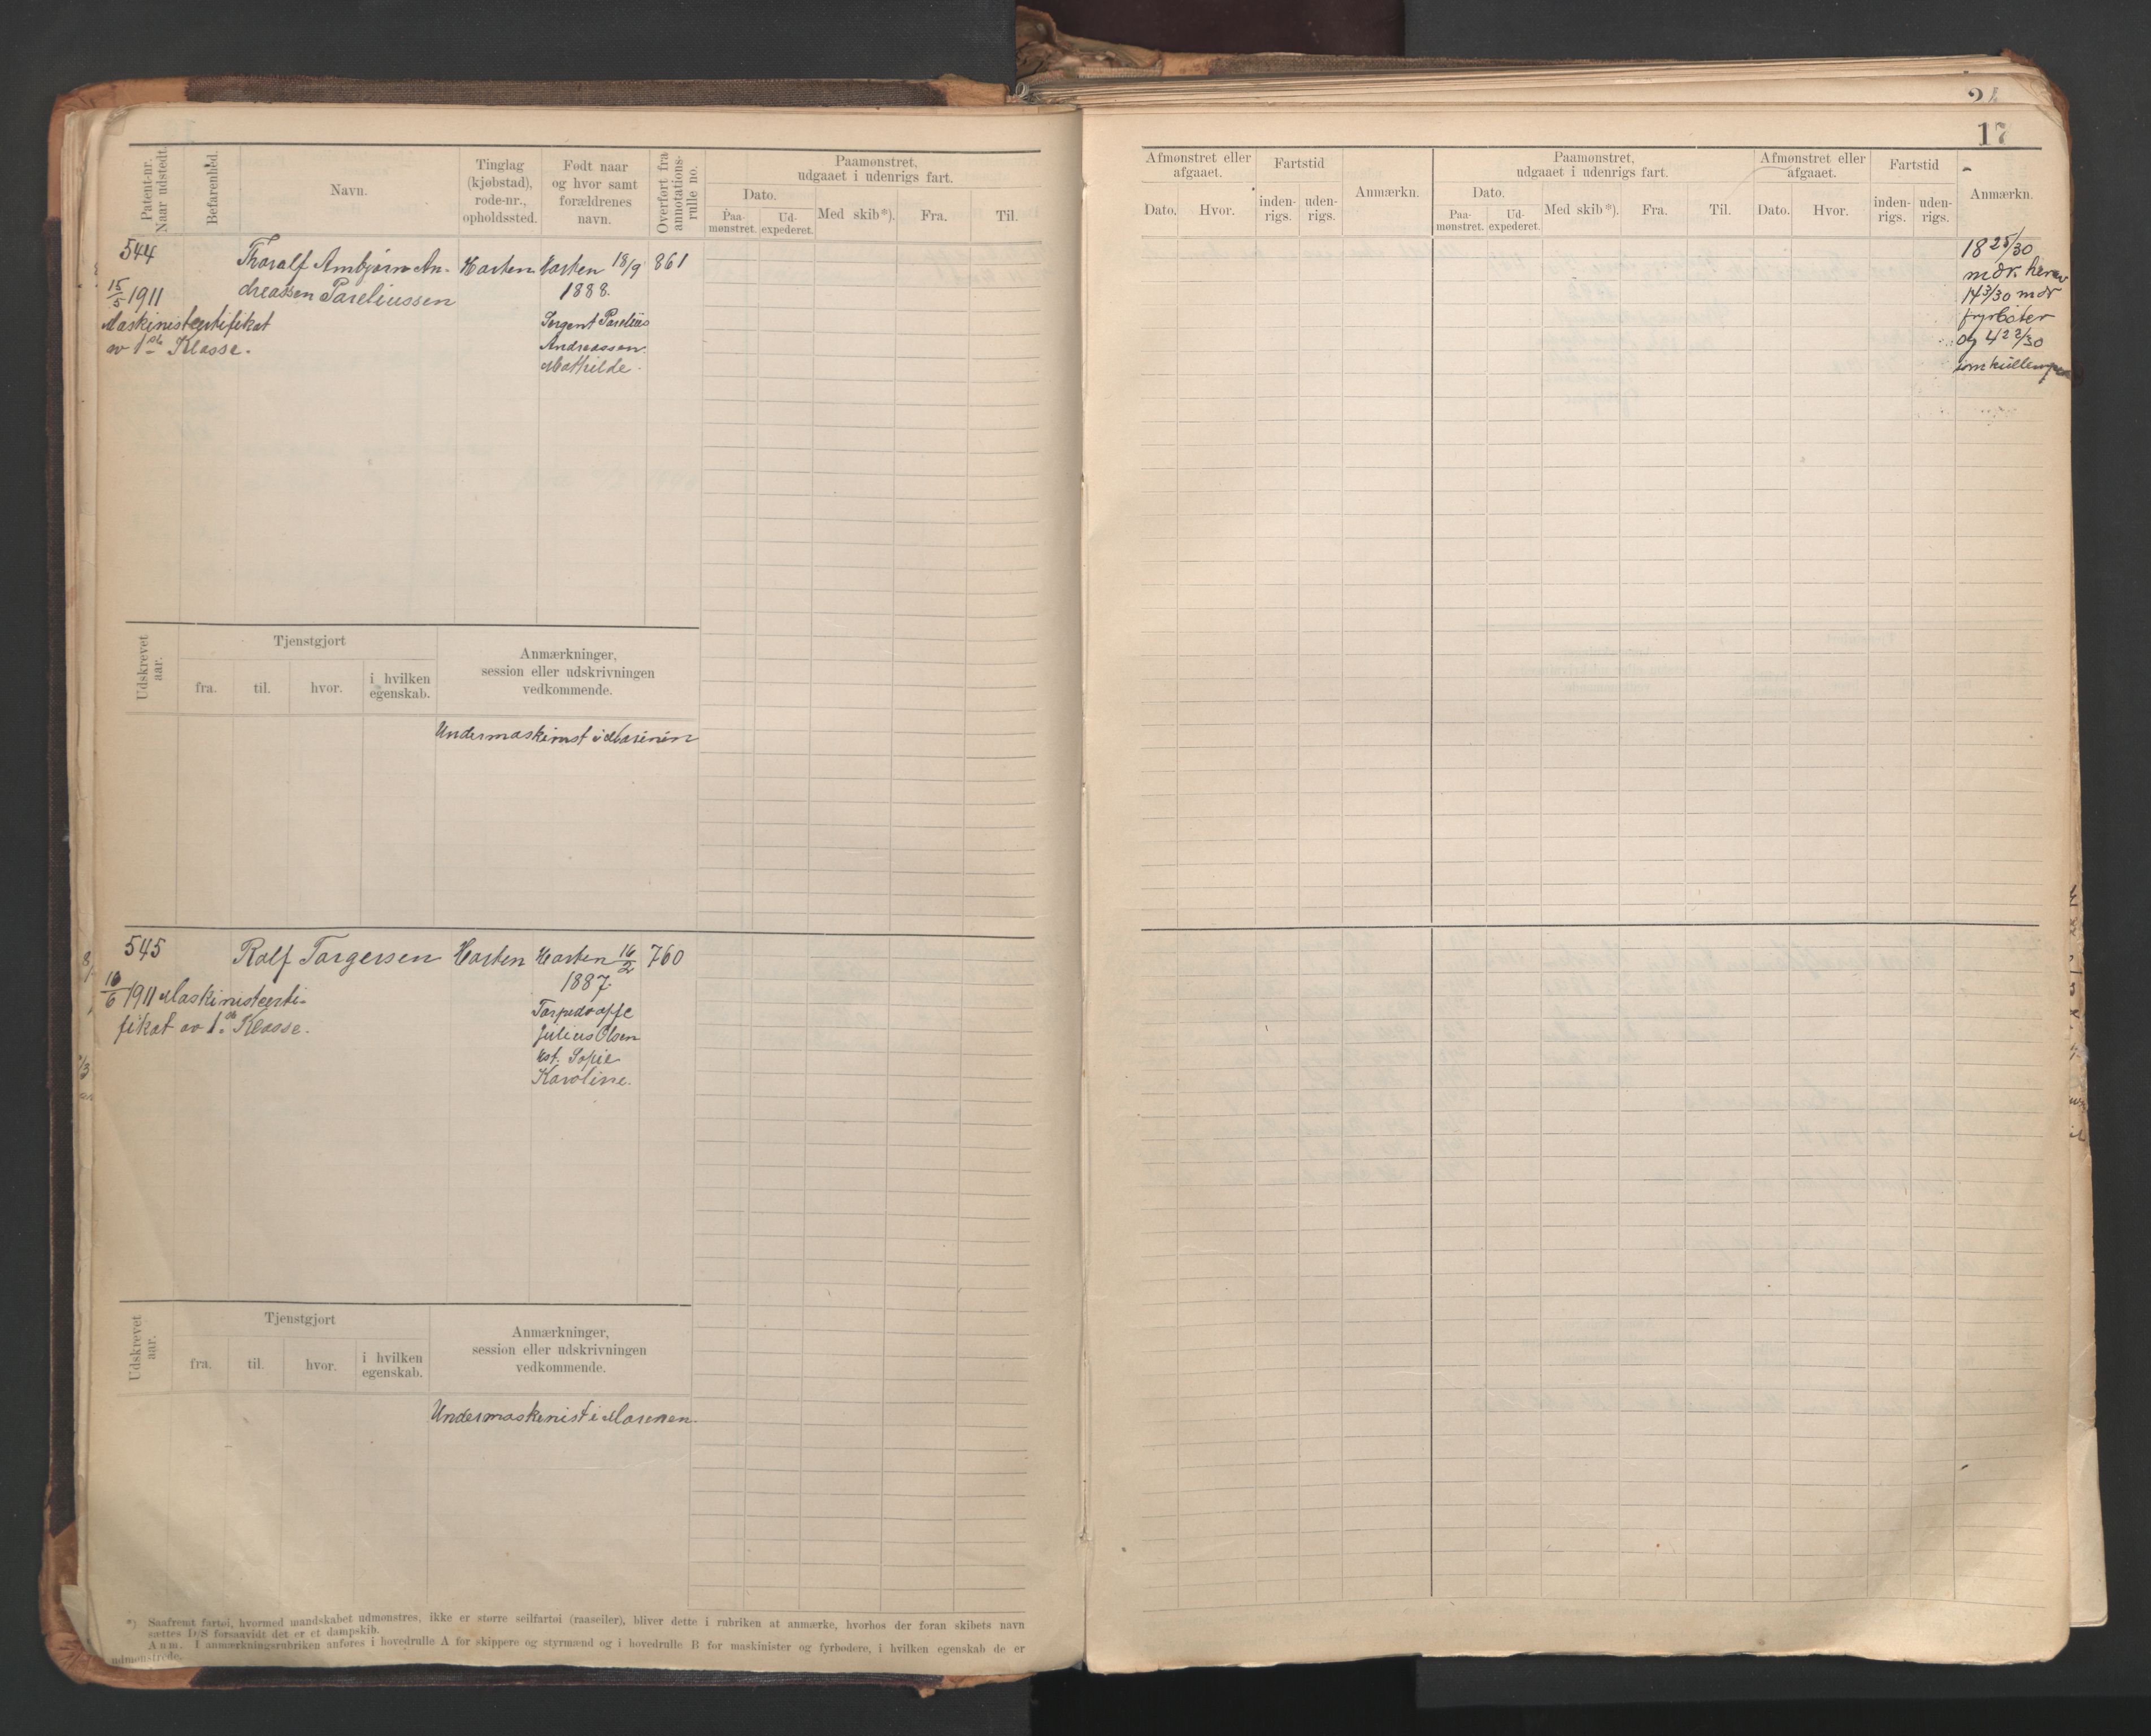 17
Patent-nr. Naar udstedt.
Befarenhed.
Navn.
Tinglag (kjøbstad), rode-nr., opholdssted.
Født naar og hvor samt forældrenes navn.
Overført fra annotations-rulle no.
Paamønstret, udgaaet i udenrigs fart.
Dato.
Paa-mønstret.
Ud-expederet.
Med skib*).
Fra.
Til.
Afmønstret eller afgaaet.
Dato.
Hvor.
Fartstid
inden-rigs.
uden-rigs.
Anmærkn.
Paamønstret, udgaaet i udenrigs fart.
Dato.
Paa-mønstret.
Ud-expederet.
Med skib*).
Fra.
Til.
Afmønstret eller afgaaet.
Dato.
Hvor.
Fartstid
inden-rigs.
uden-rigs.
Anmærkn.
544
Thoralf Arnbjørn An-
dreassen Pareliussen
Horten
Horten 18/9
1888.
Sergent Parelius
Andreassen
Mathilde.
861
15/5 1911
Maskinistcertifikat
av 1ste Klasse.
18 25/30
mdr herav
14 3/30 mdr
fyrbøter
og 4 22/30
som
Udskrevet aar.
Tjenstgjort
fra.
til.
hvor.
i hvilken egenskab.
Anmærkninger, session eller udskrivningen vedkommende.
Undermaskinist i Marinen
545
Rolf Torgersen
Horten
Horten 16/2
1887.
Torpedo
Julius Olsen
Hst. Sofie
Karoline.
760
1911 Maskinistcerti-
fikat av 1ste Klasse.
Udskrevet aar.
Tjenstgjort
fra.
til.
hvor.
i hvilken egenskab.
Anmærkninger, session eller udskrivningen vedkommende.
Undermaskinist i Marinen.
*) Saafremt fartøi, hvormed mandskabet udmønstres, ikke er større seilfartøi (raaseiler), bliver dette i rubriken at anmærke, hvorhos der foran skibets navn
sættes D/S forsaavidt det er et dampskib.
Anm. I anmærkningsrubriken anføres i hovedrulle A for skippere og styrmænd og i hovedrulle B for maskinister og fyrbødere, i hvilken egenskab de er
udmønstrede.